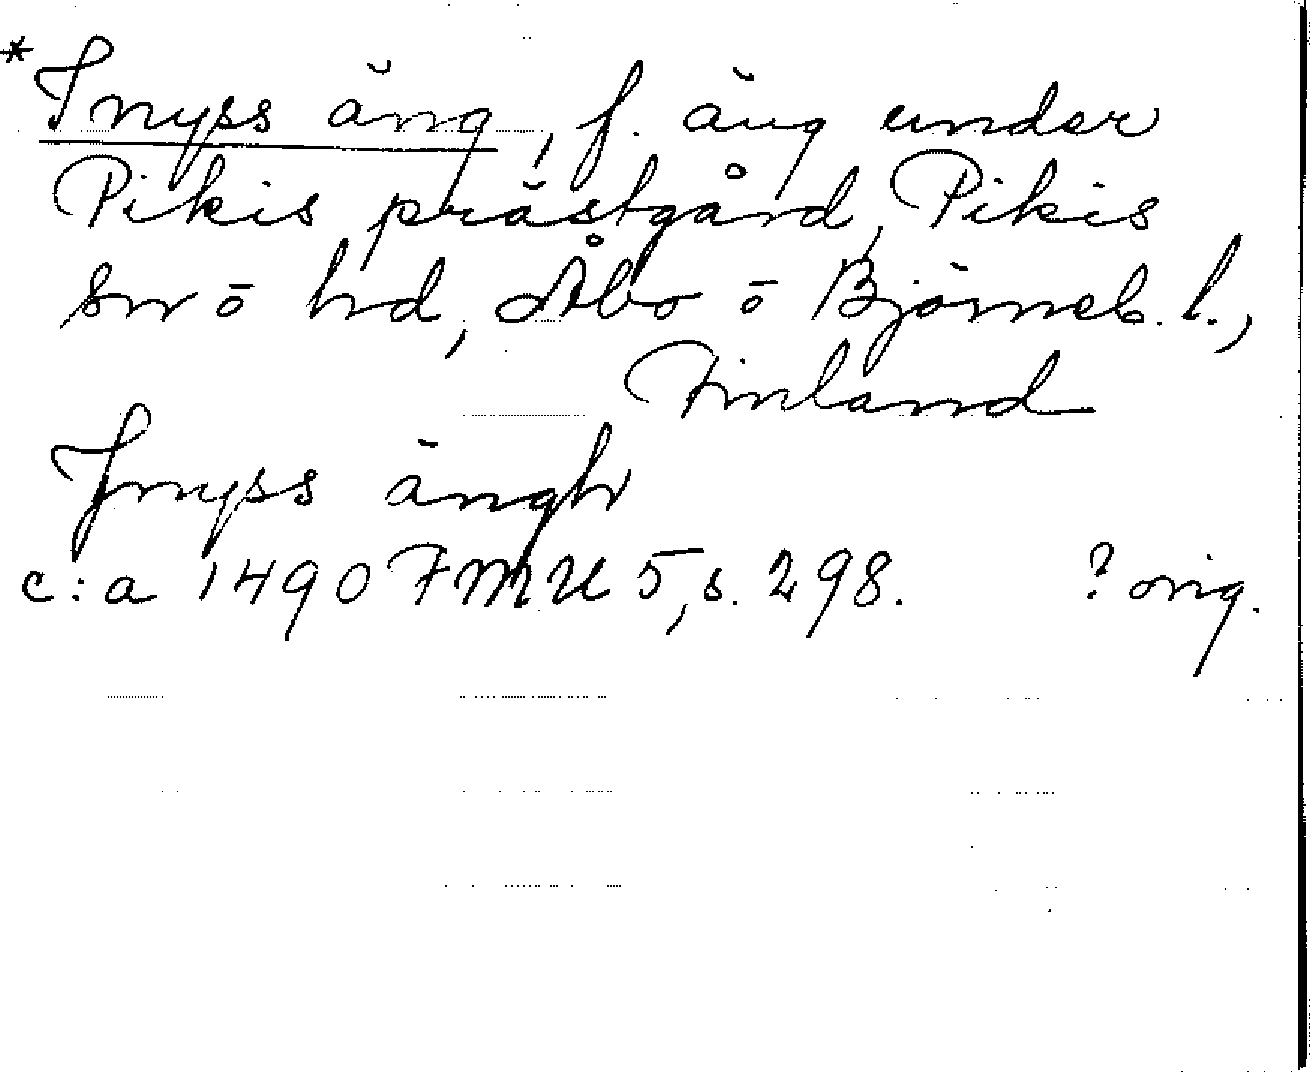 *Jnyss äng, f. äng under
Pikis prästgård, Pikis
sn o hd, Åbo o Björneb. l.,
Finland
Jnyss ängh
c:a 1490 FMU 5, s. 298. ? orig.